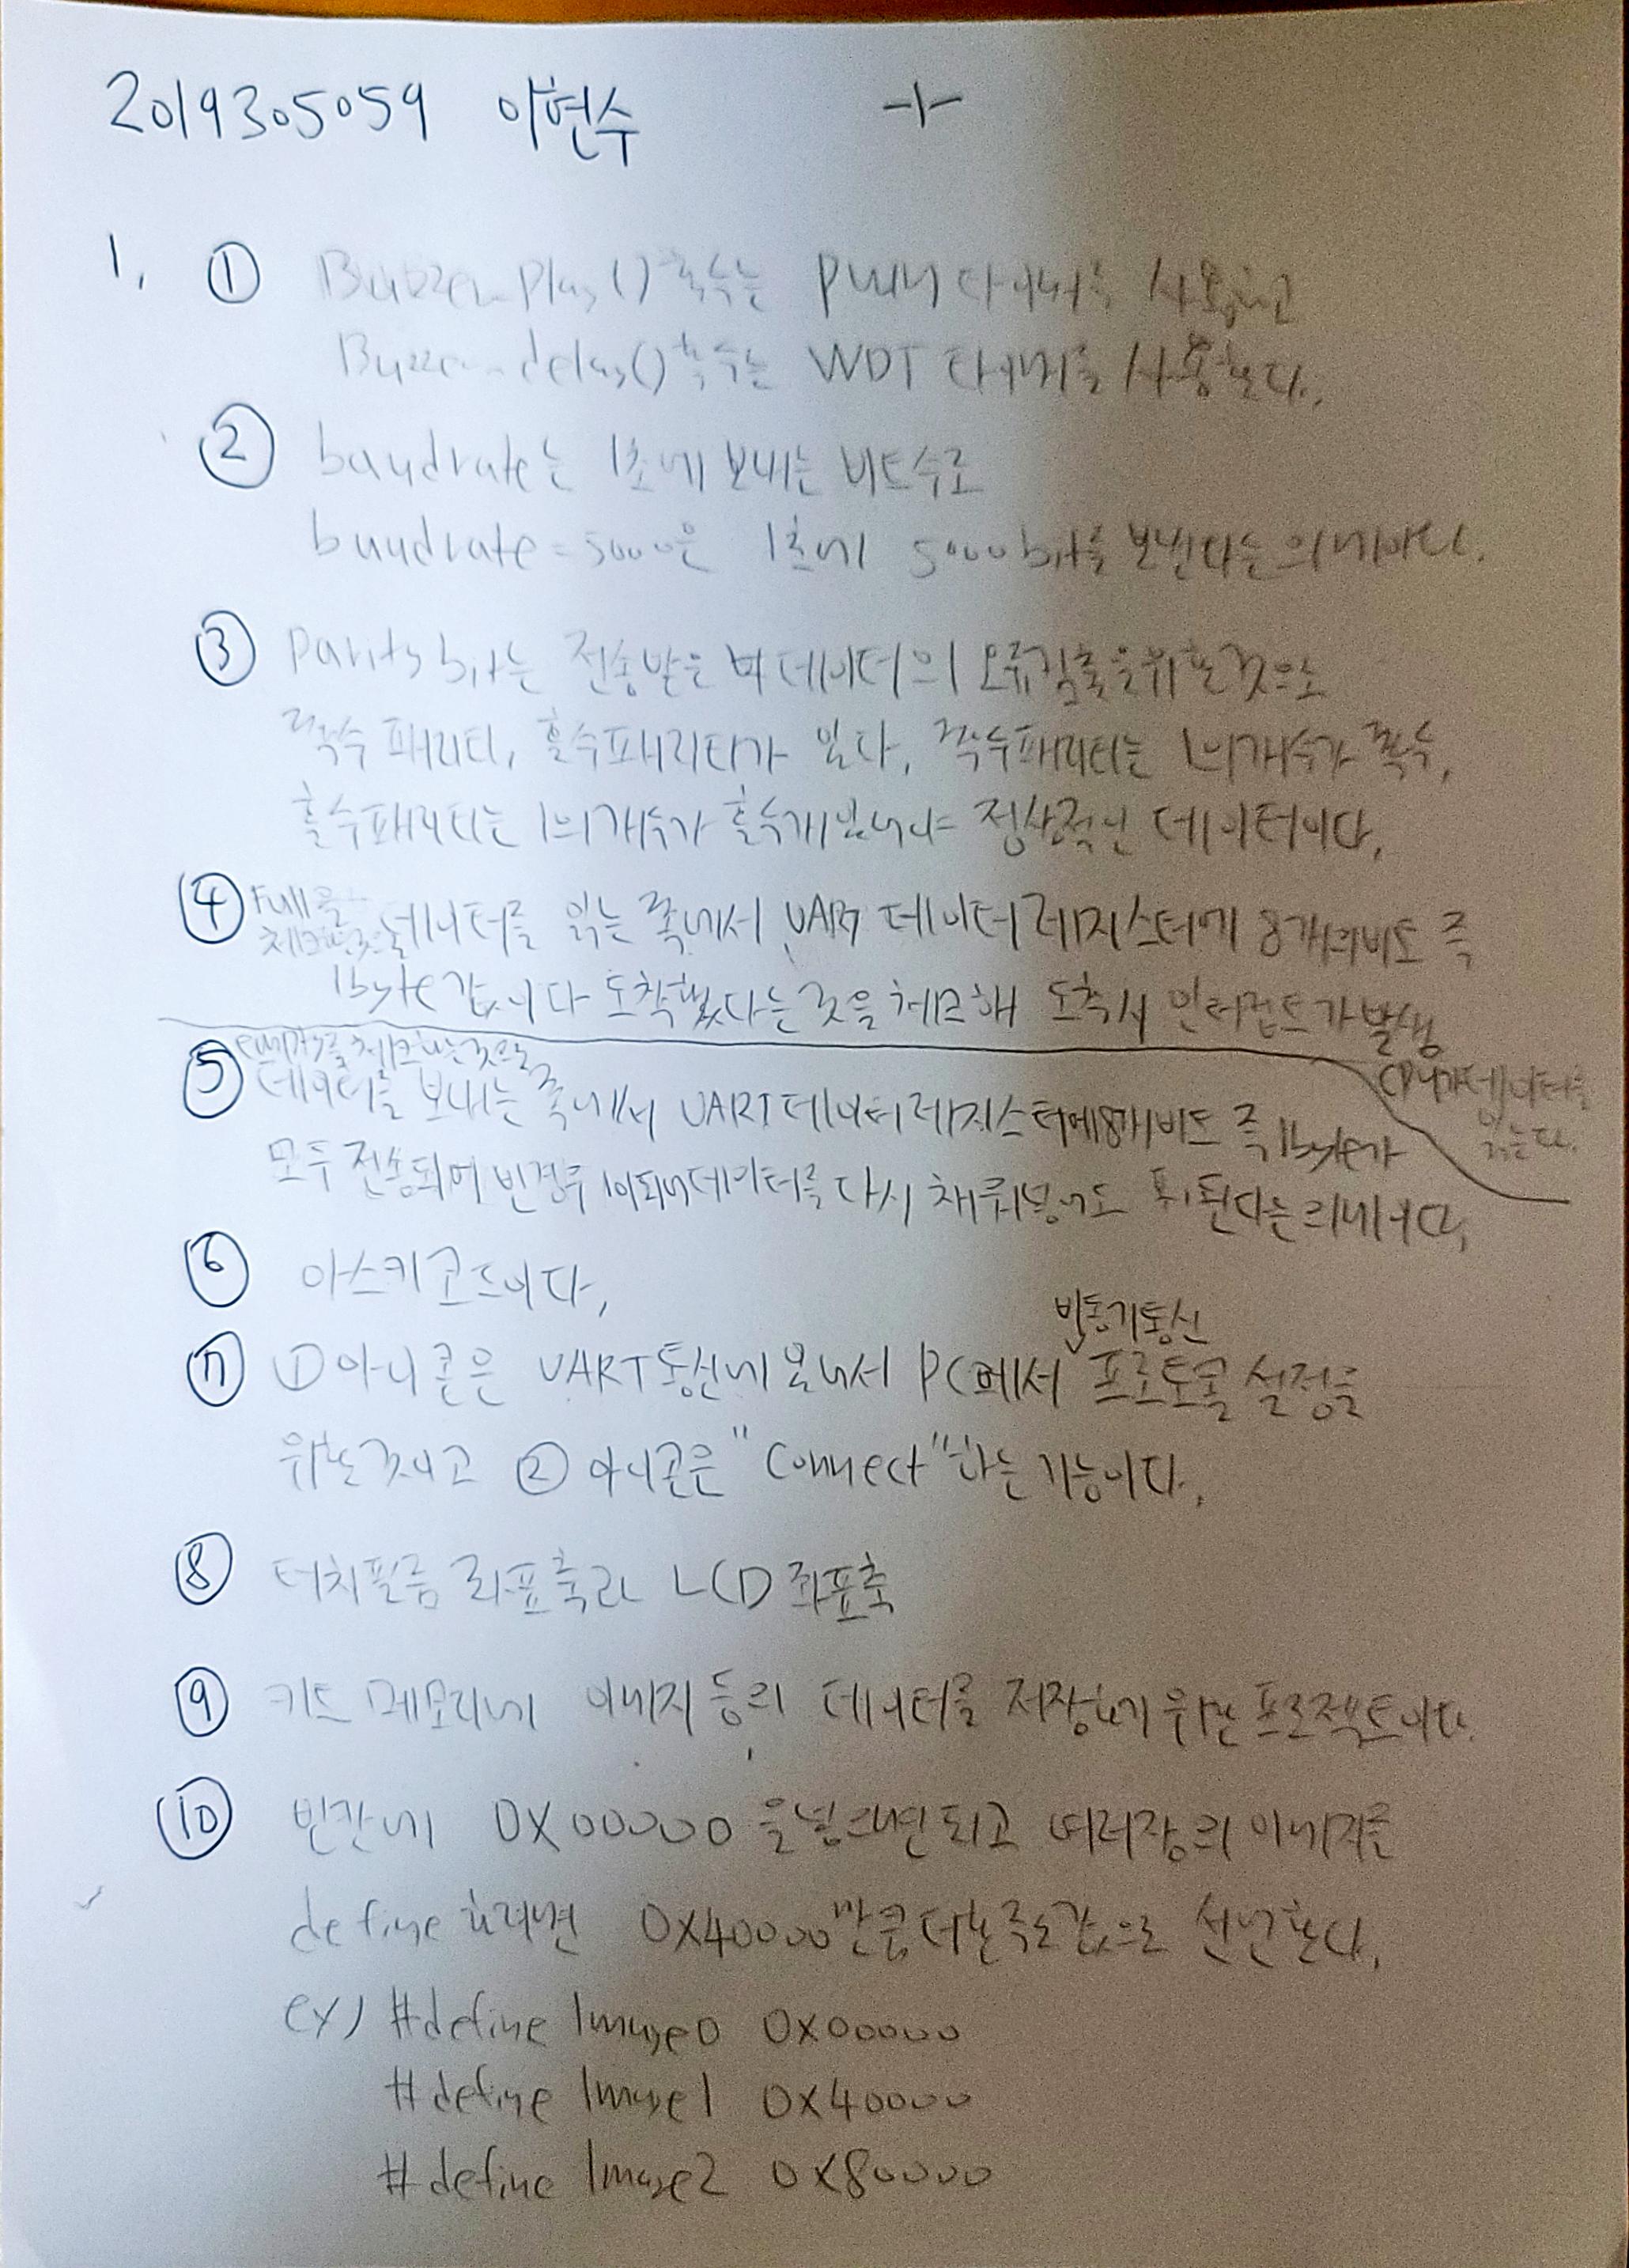 2019305059 이현수 -1-
1. ① Buzzer_Play() 함수는 PWM 타이머를 사용하고
Buzzer_delay() 함수는 WDT 타이머를 사용한다.
② baudrate는 1초에 보내는 비트수로
baudrate = 5000은 1초에 5000bit를 보낸다는 의미이다.
③ Parity bit는 전송받은 데이터의 오류검출을 위한 것으로
짝수 패리티, 홀수패리티가 있다. 짝수패리티는 1의 개수가 짝수,
홀수패리티는 1의 개수가 홀수개 있어야 정상적인 데이터이다.
④ Full을 체크하는 것은 데이터를 읽는 쪽에서 UART 데이터 레지스터에 8개의 비트 즉
1byte 값이 다 도착했다는 것을 체크해 도착시 인터럽트가 발생
CPU가 데이터를
읽는다.
⑤ empty를 체크하는 것으로
데이터를 보내는 쪽에서 UART 데이터 레지스터에 8개 비트 즉 1byte가
모두 전송되어 빈경우 데이터를 다시 채워넣어도 된다는 의미이다.
⑥ 아스키코드이다.
비동기통신
⑦ ①아이콘은 UART통신에 있어서 PC에서 프로토콜 설정을
위한 것이고 ② 아이콘은 "Connect"하는 기능이다.
⑧ 터치필름 좌표축과 LCD 좌표축
⑨ 키트 메모리에 이미지 등의 데이터를 저장하기 위한 프로젝트이다.
⑩ 빈칸에 0X00000 을 넣으면 되고 여러장의 이미지를
define 하려면 0X40000만큼 더한 주소값으로 선언한다.
ex) #define Image0 0X00000
#define Image1 0X40000
#define Image2 0X80000